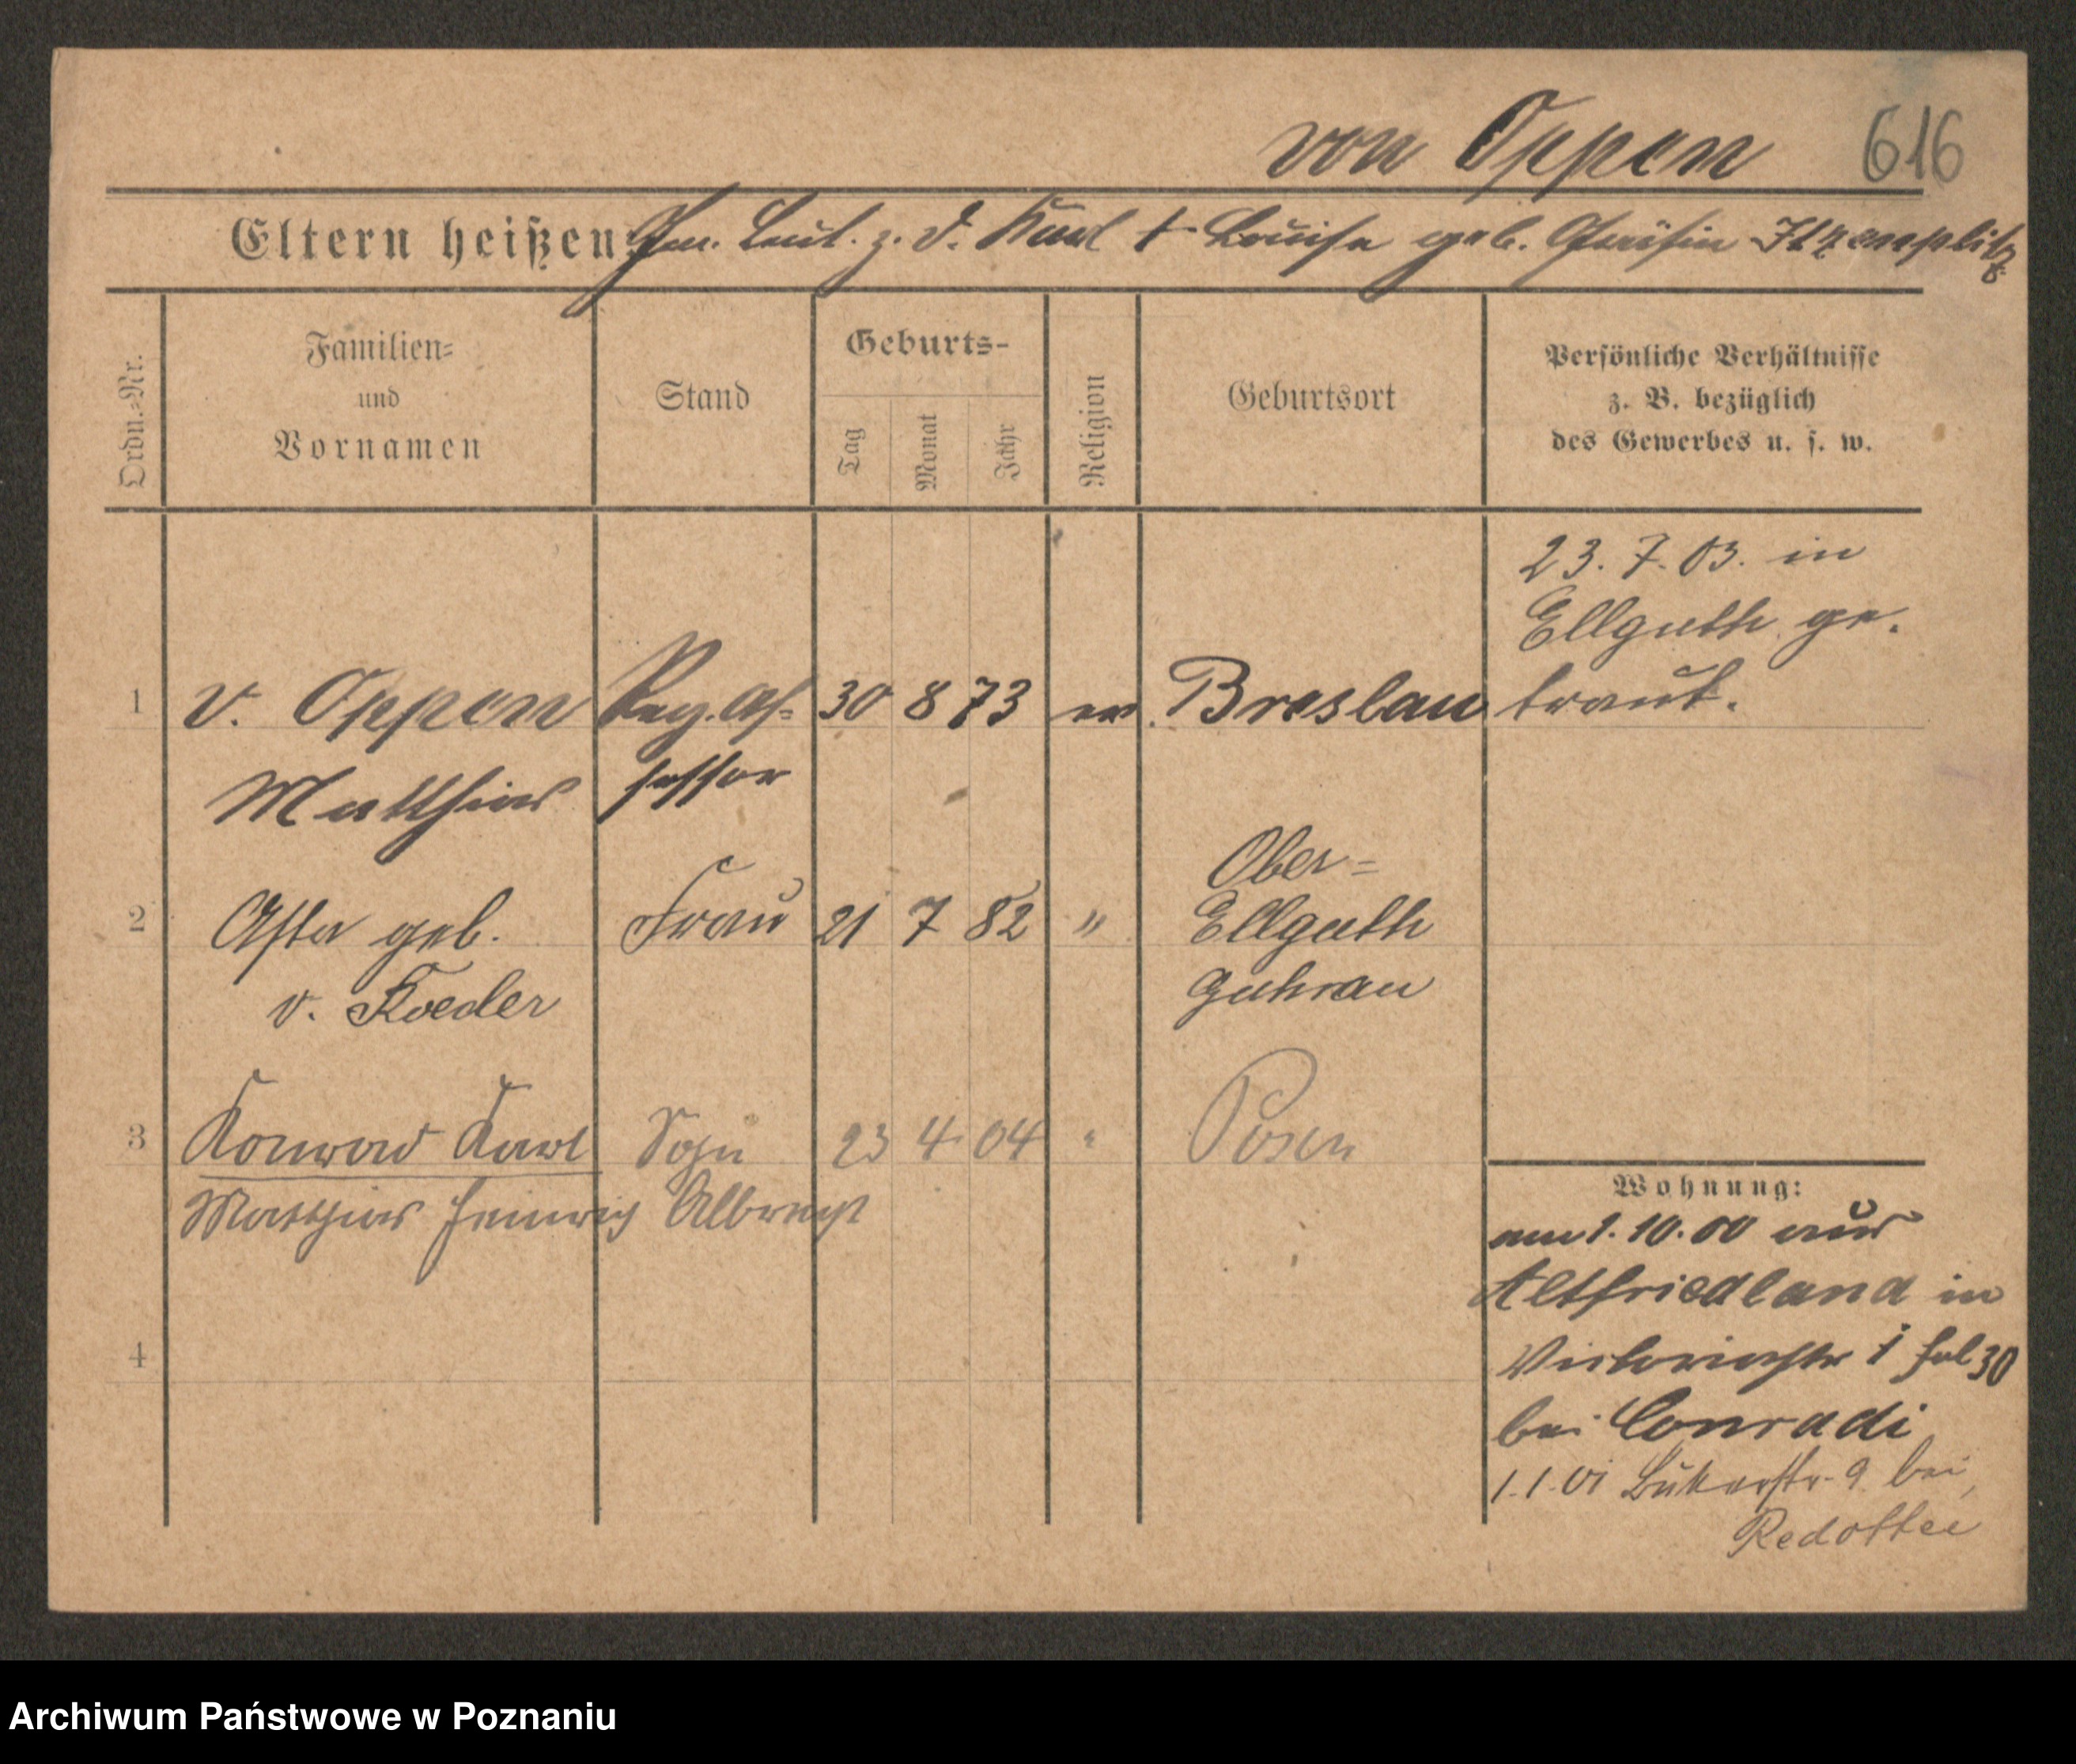 von Oppen 616
Eltern heißen: Gen. Leut. z. D. Karl † Louise geb. Gräfin Itzenplitz
Ordn.=Nr.
Familien=
und
Vornamen
Stand
Geburts-
Tag
Monat
Jahr
Religion
Geburtsort
Persönliche Verhältnisse
z. B. bezüglich
des Gewerbes u. s. w.
23. 7. 03. in
Ellguth ge-
1 v. Oppen Reg. As= 30 8 73 ev. Breslau traut.
Matthias sessor
Ober=
2 Asta geb. Frau 21 7 82 " Ellguth
v. Roeder Guhrau
3 Konrad Karl Sohn 23 4 04 " Posen
Matthias Heinrich Albrecht
4
Wohnung:
am 1. 10. 00 aus
Altfriedland in
Victoriastr 30
bei Conradi
1. 1. 01 9 bei